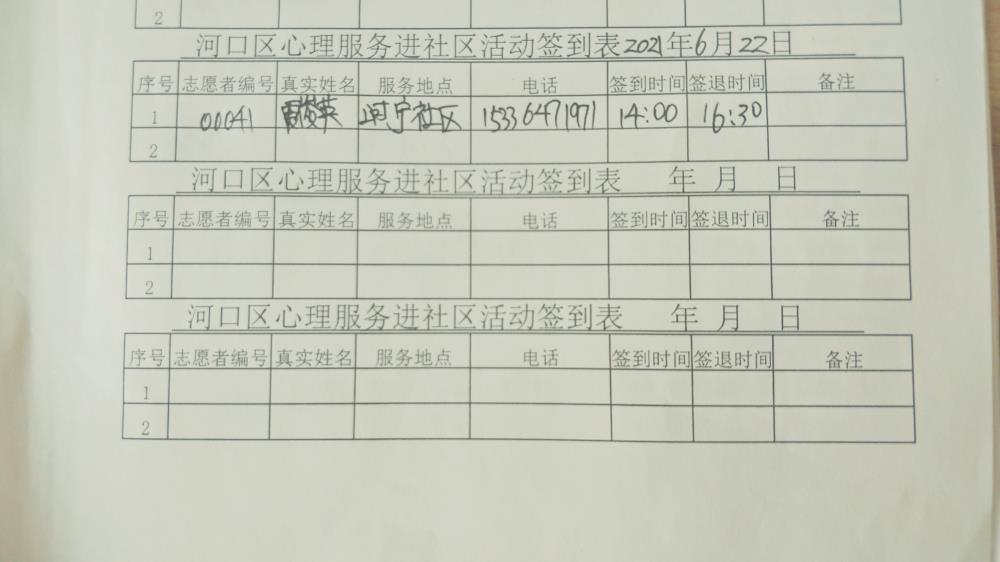 2
河口区心理服务进社区活动签到表2021年6月22日
序号 志愿者编号 真实姓名 服务地点 电话 签到时间 签退时间 备注
1 00041 河宁社区 15336471971 14:00 16:30
2
河口区心理服务进社区活动签到表 年 月 日
序号 志愿者编号 真实姓名 服务地点 电话 签到时间 签退时间 备注
1
2
河口区心理服务进社区活动签到表 年 月 日
序号 志愿者编号 真实姓名 服务地点 电话 签到时间 签退时间 备注
1
2